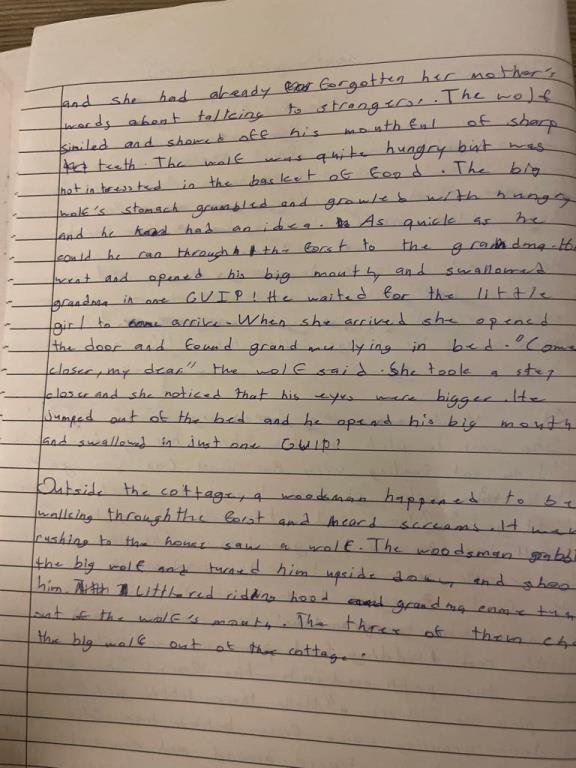 and she had already forgotten her mother's
words about talking to strangers. The wolf
smiled and showed off his mouthful of sharp
teeth. The wolf was quite hungry but was
not intressted in the basket of food. The big
wolf's stomach grumbled and growled with hungry
and he had an idea. As quick as he
could he ran through the forst to the grandma. He
went and opened his big mouth and swallowed
grandma in one GULP! He waited for the little
girl to arrive. When she arrived she opened
the door and found grandma lying in bed. "Come
closer, my dear" the wolf said. She took a step
closer and she noticed that his eyes were bigger. He
jumped out of the bed and he opend his big mouth
and swallowd in just one GULP!
Outside the cottage, a woodsman happened to be
walking through the forst and heard screams. It
rushing to the house saw a wolf. The woodsman
the big wolf and turned him upside down, and
him Little red riding hood grandma came
out of the wolf's mouth. The three of them
the big wolf out of the cottage.